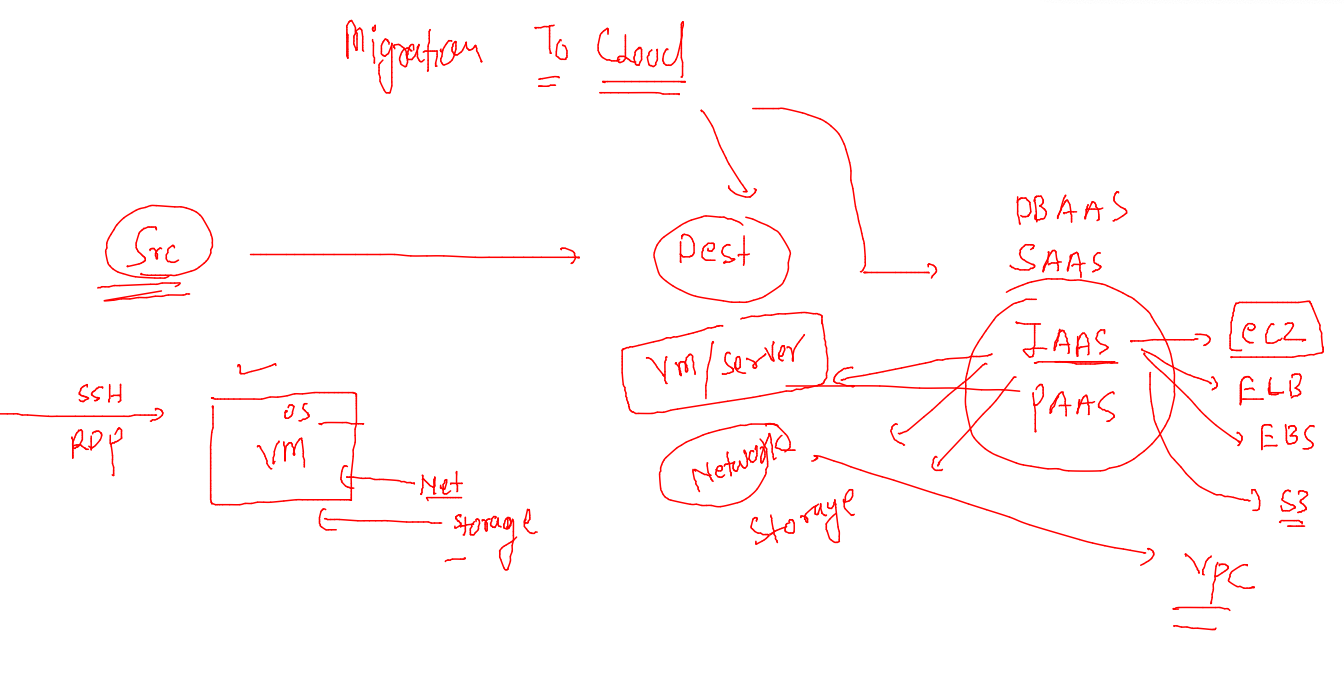 Migration To Cloud
Src
Dest
DBAAS
SAAS
IAAS
PAAS
EC2
ELB
EBS
S3
VPC
VM/Server
Network
Storage
SSH
RDP
OS
VM
Net
Storage